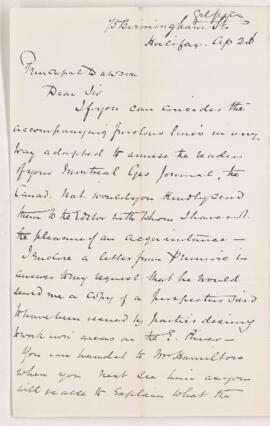 Gilpin
75 Birmingham St.
Halifax. Ap 26
Principal Dawson
Dear Sir
If you can consider the
accompanying frivolous lines in any
way adapted to amuse the readers
of your Montreal Geo Journal, the
Canad. Nat. would you kindly send
them to the Editor with whom I have not
the pleasure of an acquaintance —
I enclose a letter from in
answer to my request that he would
send me a copy of a prospectus said
to have been issued by parties desiring
to work iron areas on the E. River —
You can hand it to Mr Hamilton
when you next see him as you
will be able to explain what the